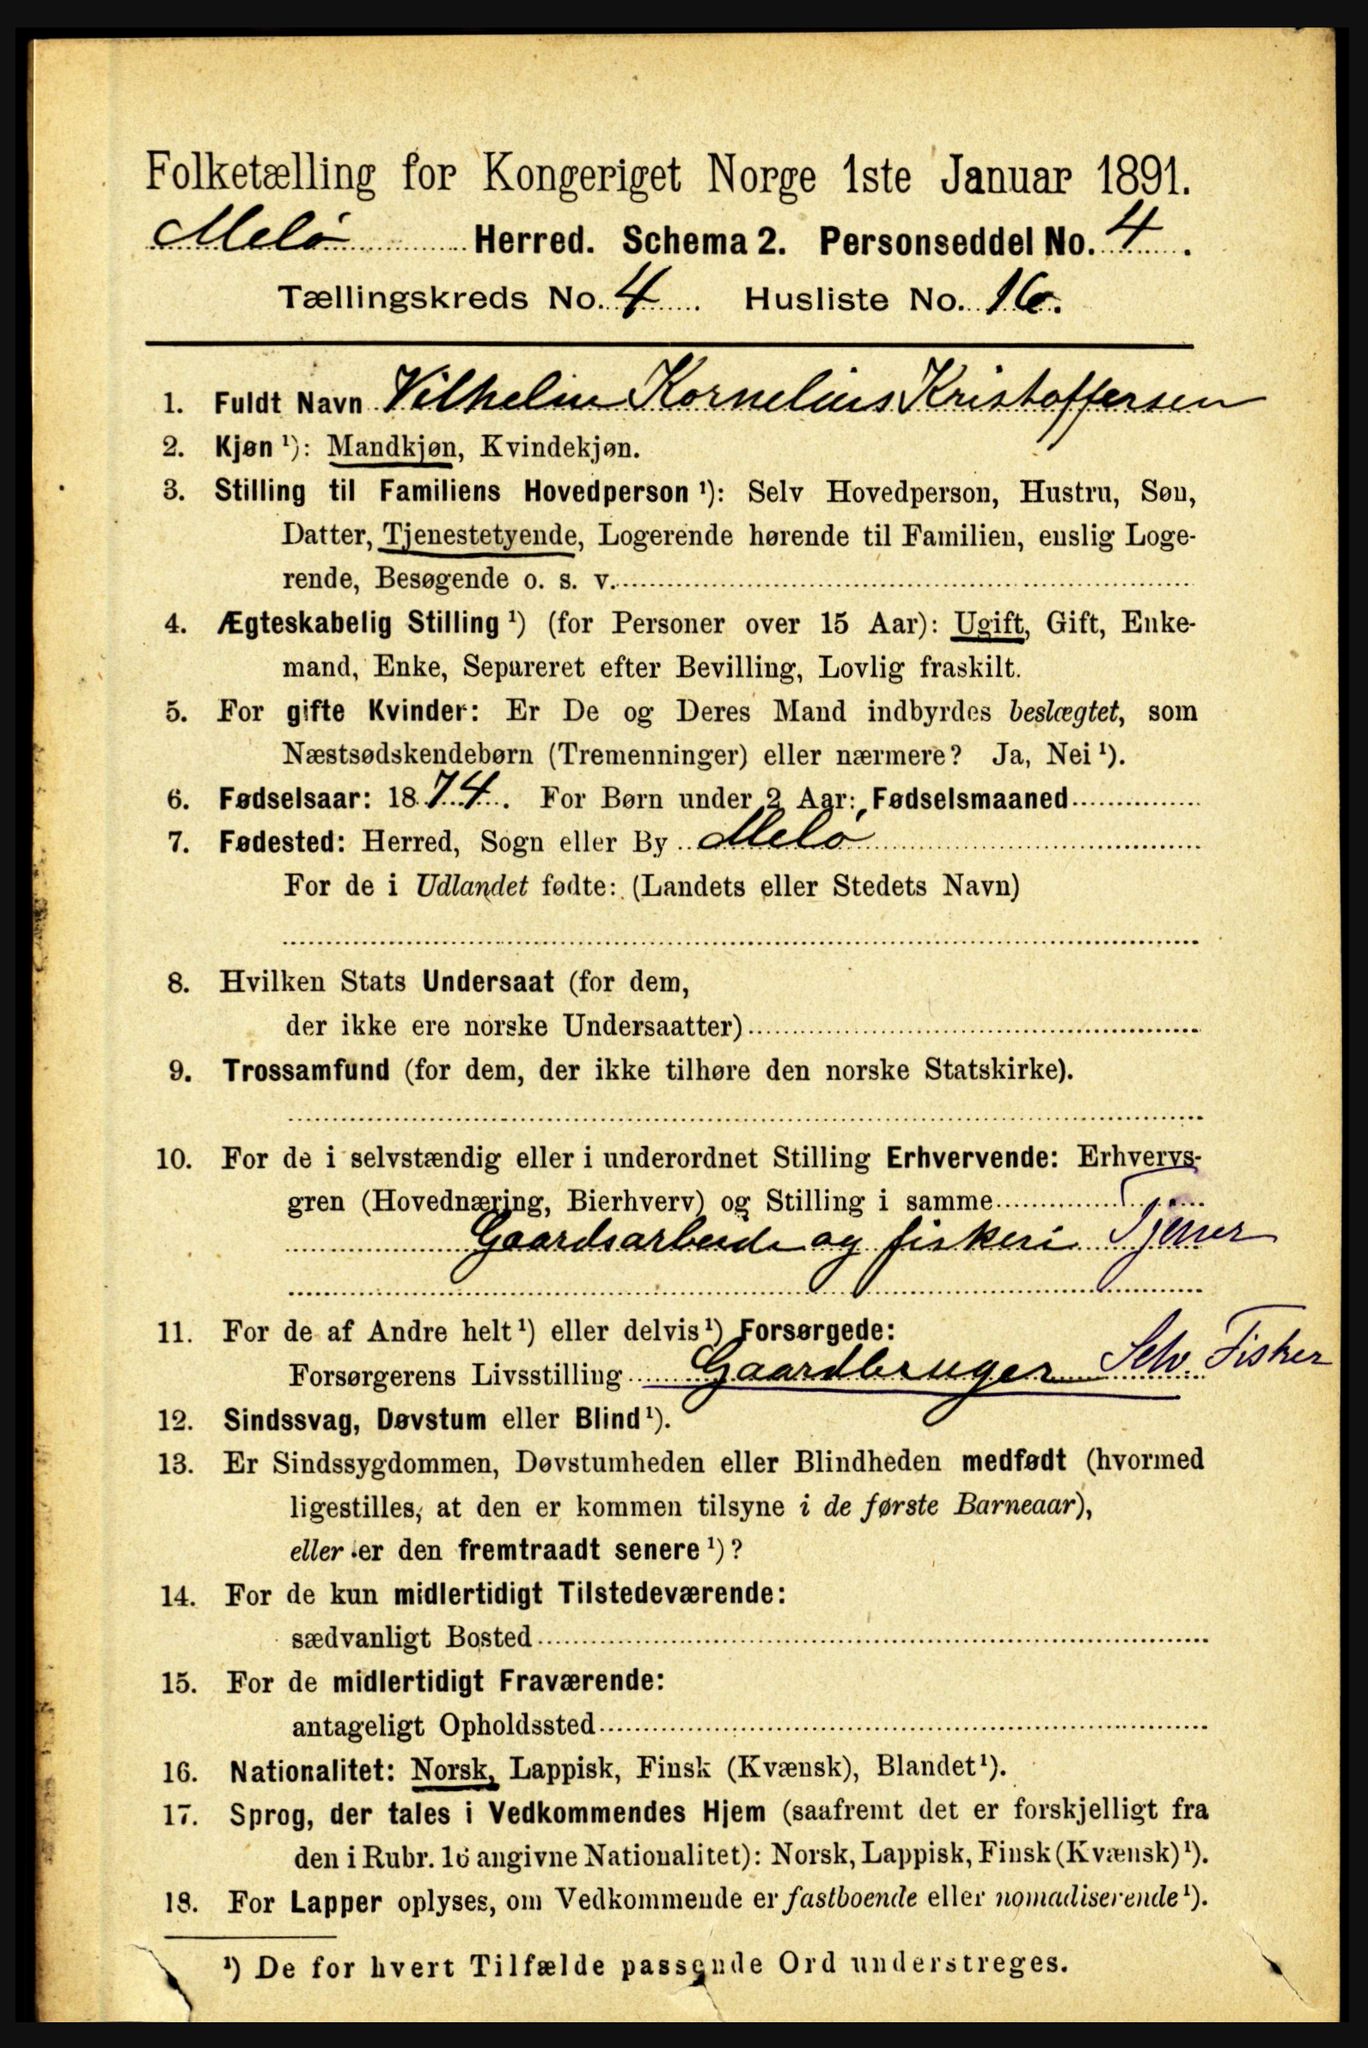 Folketælling for Kongeriget Norge 1ste Januar 1891.
Melø Herred. Schema 2. Personseddel No. 4.
Tællingskreds No. 4. Husliste No. 16.
1. Fuldt Navn Vilhelm Kornelius Kristoffersen
2. Kjøn ¹): Mandkjøn, Kvindekjøn.
3. Stilling til Familiens Hovedperson ¹): Selv Hovedperson, Hustru, Søn,
Datter, Tjenestetyende, Logerende hørende til Familien, enslig Loge-
rende, Besøgende o. s. v.
4. Ægteskabelig Stilling ¹) (for Personer over 15 Aar): Ugift, Gift, Enke-
mand, Enke, Separeret efter Bevilling, Lovlig fraskilt.
5. For gifte Kvinder: Er De og Deres Mand indbyrdes beslægtet, som
Næstsødskendebørn (Tremenninger) eller nærmere? Ja, Nei ¹).
6. Fødselsaar: 1874. For Børn under 2 Aar: Fødselsmaaned
7. Fødested: Herred, Sogn eller By Melø
For de i Udlandet fødte: (Landets eller Stedets Navn)
8. Hvilken Stats Undersaat (for dem,
der ikke ere norske Undersaatter)
9. Trossamfund (for dem, der ikke tilhøre den norske Statskirke).
10. For de i selvstændig eller i underordnet Stilling Erhvervende: Erhvervs-
gren (Hovednæring, Bierhverv) og Stilling i samme
Gaardsarbeide og fiskeri Tjener
11. For de af Andre helt ¹) eller delvis ¹) Forsørgede:
Forsørgerens Livsstilling Gaardbruger Selv Fisker
12. Sindssvag, Døvstum eller Blind ¹).
13. Er Sindssygdommen, Døvstumheden eller Blindheden medfødt (hvormed
ligestilles, at den er kommen tilsyne i de første Barneaar),
eller er den fremtraadt senere ¹)?
14. For de kun midlertidigt Tilstedeværende:
sædvanligt Bosted
15. For de midlertidigt Fraværende:
antageligt Opholdssted
16. Nationalitet: Norsk, Lappisk, Finsk (Kvænsk), Blandet ¹).
17. Sprog, der tales i Vedkommendes Hjem (saafremt det er forskjelligt fra
den i Rubr. 16 angivne Nationalitet): Norsk, Lappisk, Finsk (Kvænsk) ¹).
18. For Lapper oplyses, om Vedkommende er fastboende eller nomadiserende ¹).
¹) De for hvert Tilfælde passende Ord understreges.